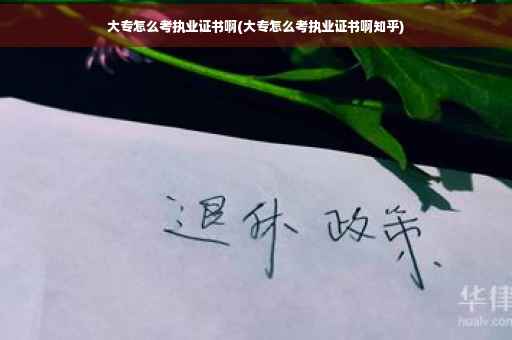 大专怎么考执业证书啊(大专怎么考执业证书啊知乎)
退休 政策
华律
hualv.com